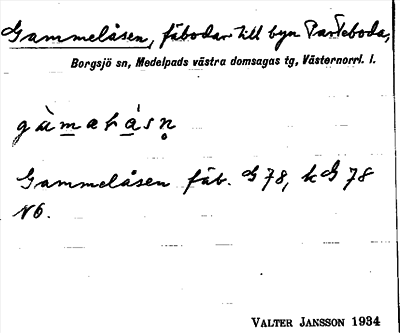 Gammelåsen, fäbodar till byn Parteboda,
Borgsjö sn, Medelpads västra domsagas tg, Västernorrl. l.
Gammelåsen fäb. G 78, kG 78
N6.
VALTER JANSSON 1934